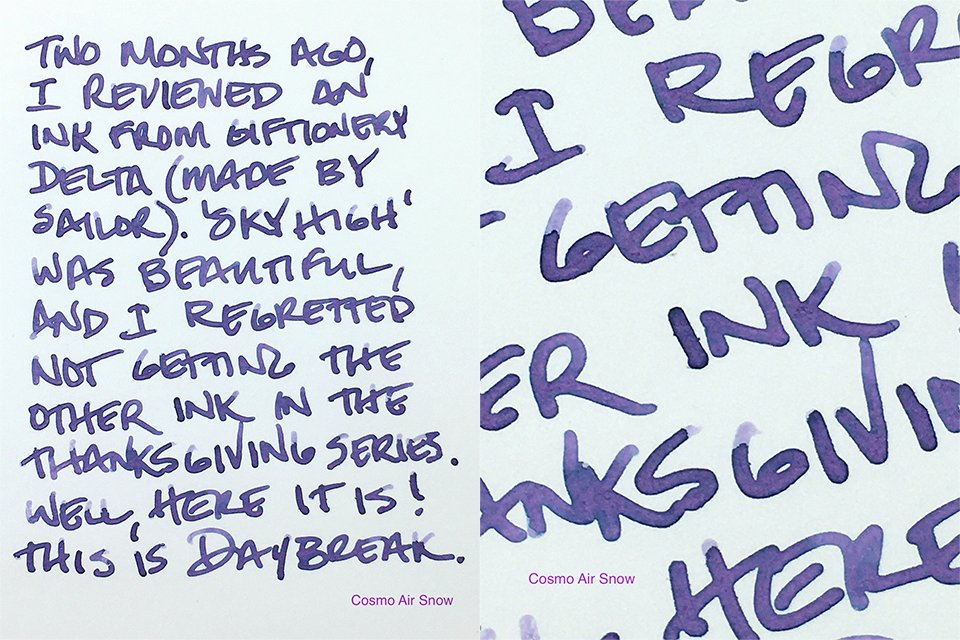 TWO MONTHS AGO,
I REVIEWED AN
INK FROM GIFTIONERY
DELTA (MADE BY
SAILOR). 'SKY HIGH'
WAS BEAUTIFUL,
AND I REGRETTED
NOT GETTING THE
OTHER INK IN THE
THANKSGIVING SERIES.
WELL, HERE IT IS!
THIS IS DAYBREAK.
Cosmo Air Snow
I REGR
GETTING
ER INK
ANKSGIVIN
HERE
Cosmo Air Snow